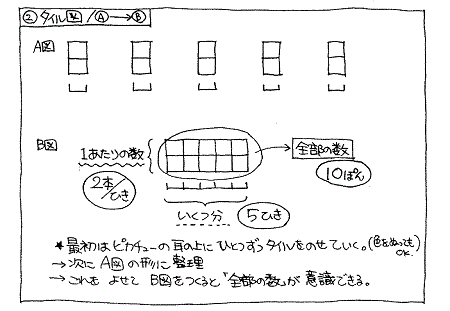 ② タイル図/Ⓐ→Ⓑ
A図
B図
1あたりの数
全部の数
2本/ひき
10ぽん
いくつ分
5ひき
★最初はピカチューの耳の上にひとつずつタイルをのせていく。(色をぬってもOK.
→次にA図の形に整理
→これをよせてB図をつくると「全部の数」が意識できる。